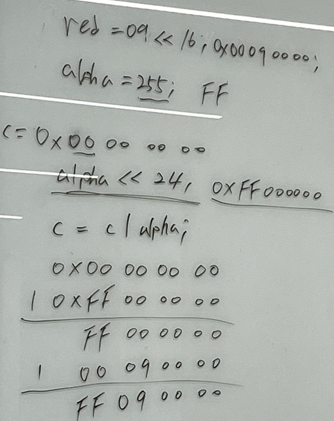 red = 09 << 16; 0x00090000;
alpha = 255; FF
c = 0x00 00 00 00
alpha << 24, 0XFF000000
c = c | alpha;
0x00 00 00 00
| 0xFF 00 00 00
FF 00 00 00
| 00 09 00 00
FF 09 00 00